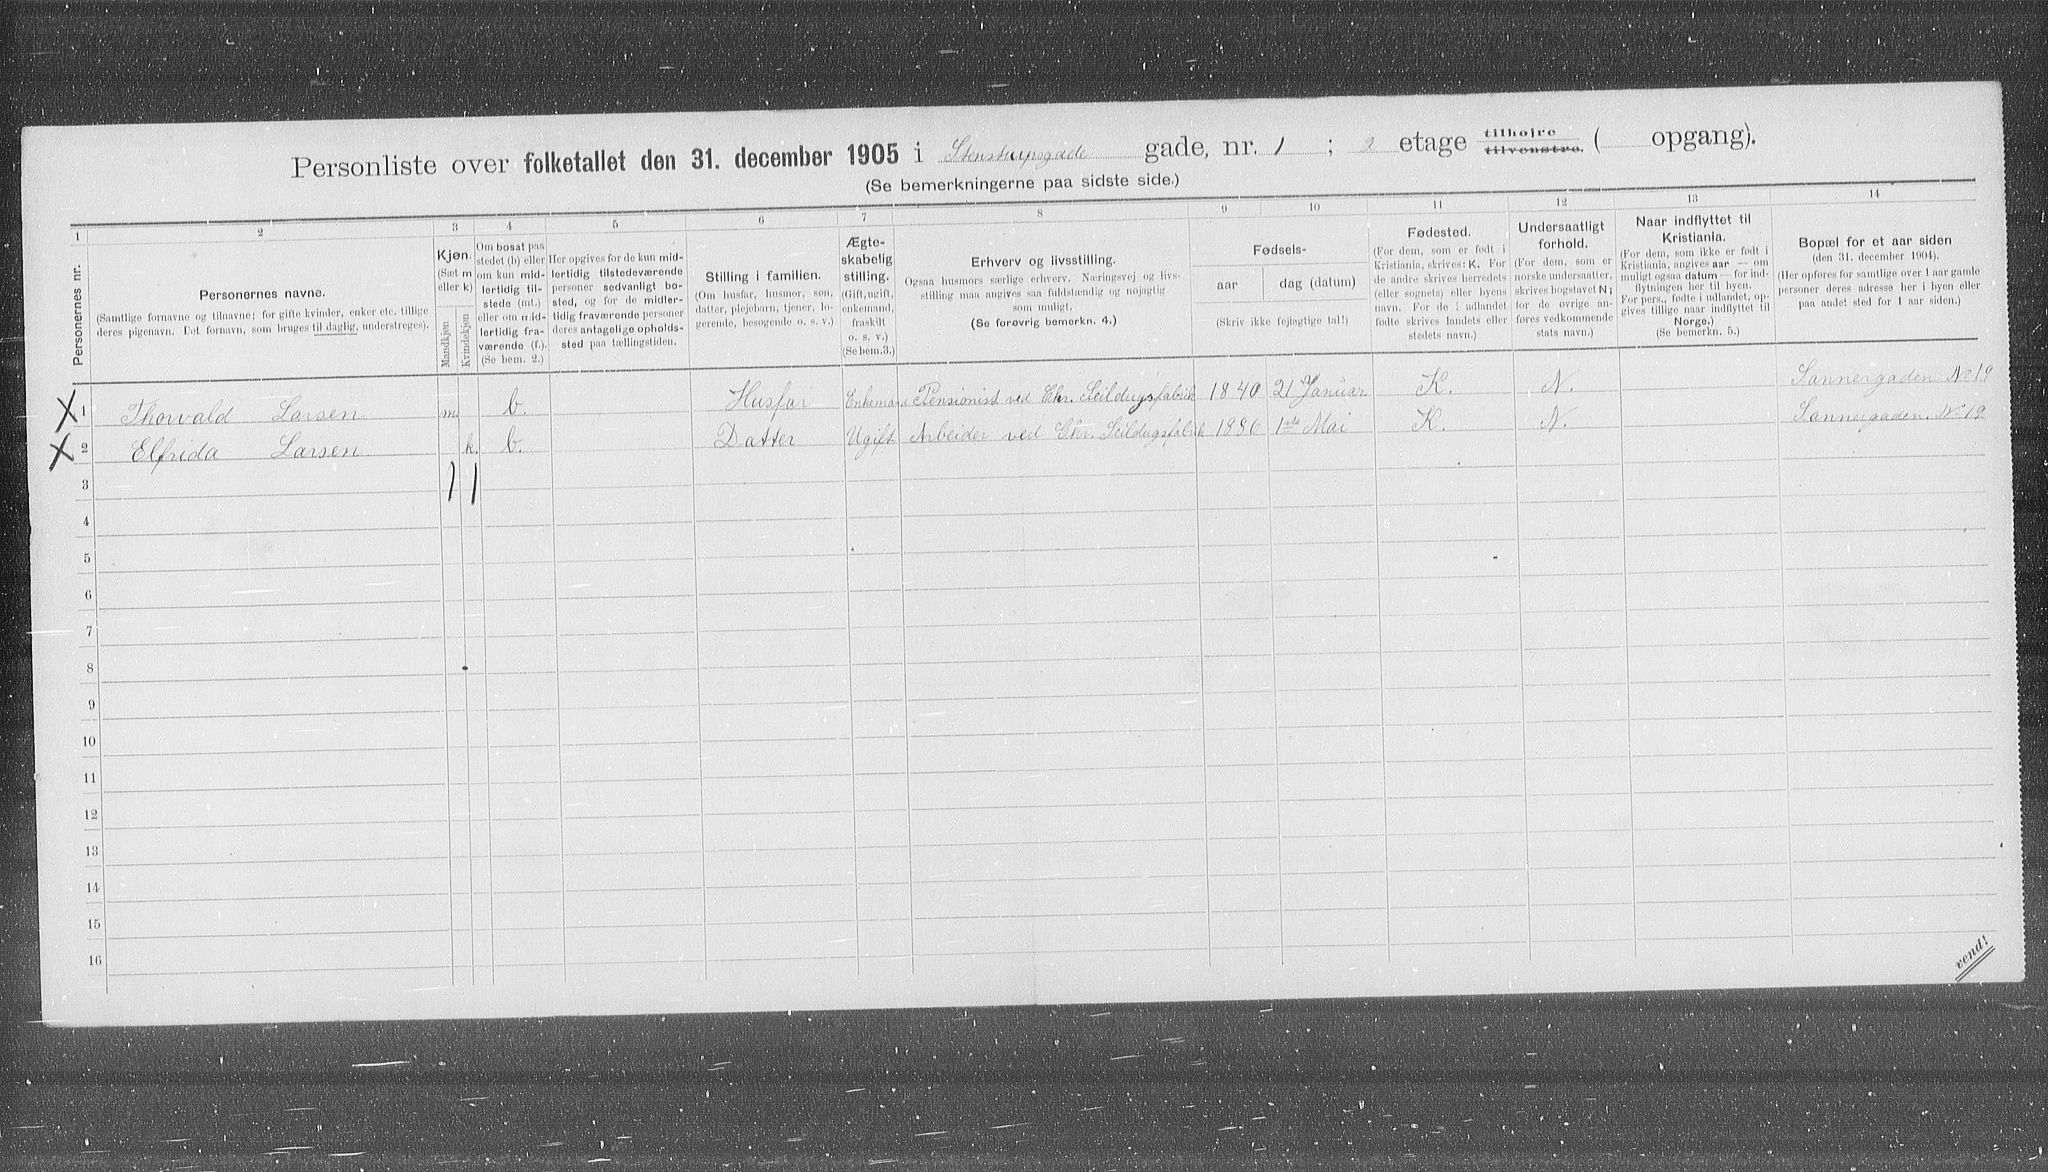 Personliste over folketallet den 31. december 1905 i Stenstrupsgade gade, nr. 1 ; 2 etage tilhøjre tilvenstre. ( opgang).
(Se bemerkningerne paa sidste side.)
1 2 3 4 5 6 7 8 9 10 11 12 13 14
Personernes nr.
Personernes navne.
(Samtlige fornavne og tilnavne; for gifte kvinder, enker etc. tillige
deres pigenavn. Det fornavn, som bruges til daglig, understreges).
Kjøn.
(Sæt m
eller k)
Mandkjøn.
Kvindekjøn
Om bosat paa
stedet (b) eller
om kun mid-
lertidig til-
stede (mt.)
eller om mid-
lertidig fra-
værende (f.).
(Se bem. 2.)
Her opgives for de kun mid-
lertidig tilstedeværende
personer sedvanligt bo-
sted, og for de midler-
tidig fraværende personer
deres antagelige opholds-
sted paa tællingstiden.
Stilling i familien.
(Om husfar, husmor, søn,
datter, plejebarn, tjener, lo-
gerende, besøgende o. s. v.)
Ægte-
skabelig
stilling.
(Gift, ugift,
enkemand,
fraskilt
o. s. v.)
(Se bem.3.)
Erhverv og livsstilling.
Ogsaa husmors særlige erhverv. Næringsvej og livs-
stilling maa angives saa fuldstændig og nøjagtig
som muligt.
(Se forøvrig bemerkn. 4.)
Fødsels-
aar
dag (datum)
(Skriv ikke fejlagtige tal!)
Fødested.
(For dem, som er født i
Kristiania, skrives: K. For
de andre skrives herredets
(eller sognets) eller byens
navn. For de i udlandet
fødte skrives landets eller
stedets navn.)
Undersaatligt
forhold.
(For dem, som er
norske undersaatter,
skrives bogstavet N;
for de øvrige an-
føres vedkommende
stats navn.)
Naar indflyttet til
Kristiania.
(For dem, som ikke er født i
Kristiania, angives aar — om
muligt ogsaa datum — for ind-
flytningen her til byen.
For pers., fødte i udlandet, op-
gives tillige naar indflyttet til
Norge.)
(Se bemerkn. 5.)
Bopæl for et aar siden
(den 31. december 1904).
(Her opføres for samtlige over 1 aar gamle
personer deres adresse her i byen eller
paa andet sted for 1 aar siden.)
X 1 Thorvald Larsen m. b. Husfar Enkemand Pensionist ved Chr. Seildugsfabrik 1840 21 Januar K. N. Sannergaden No 19
X 2 Elfrida Larsen k. b. Datter Ugift Arbeider ved Chr. Seildugsfabrik 1886 1ste Mai K. N. Sannergaden No 19
3 1 1
4
5
6
7
8
9
10
11
12
13
14
15
16
vend!